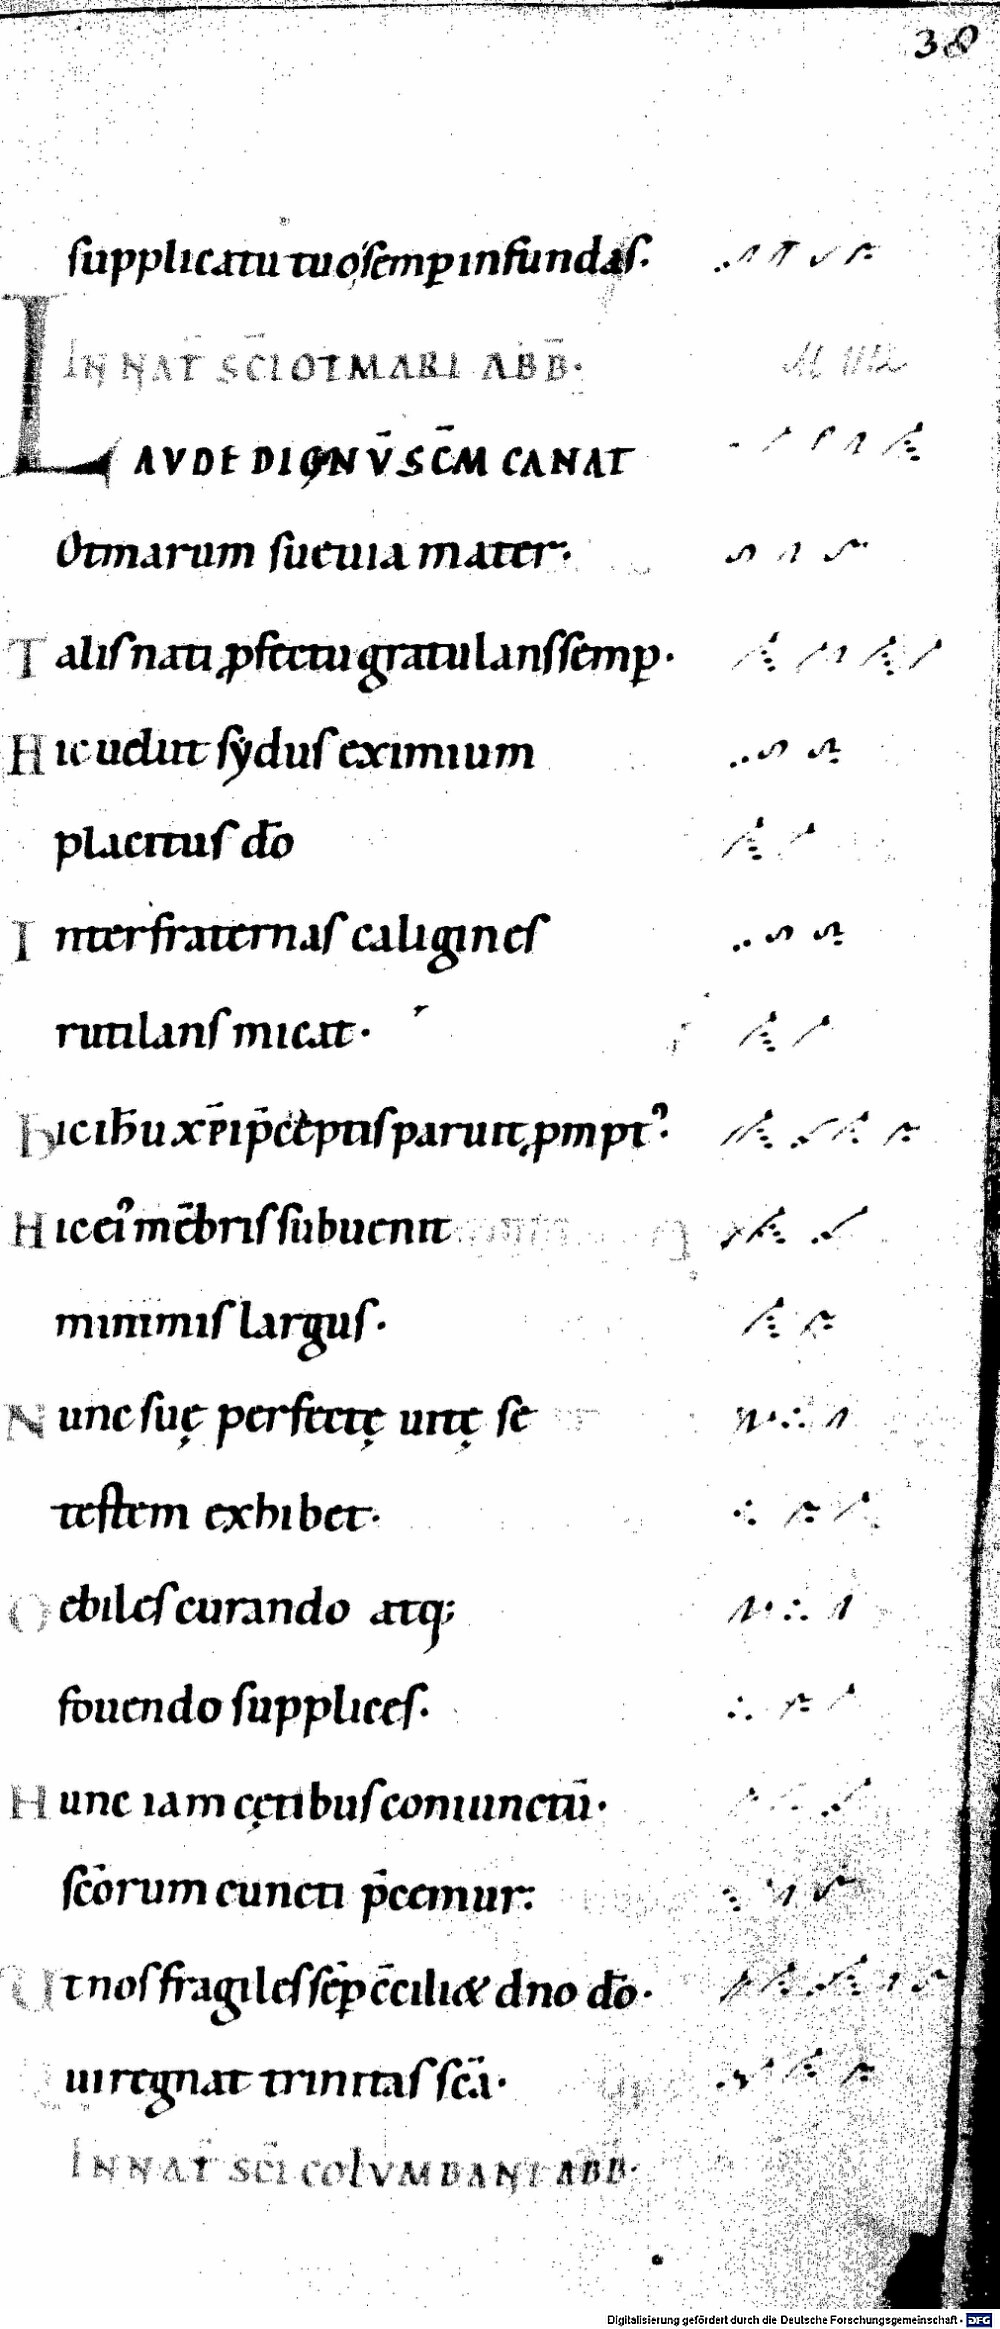 38
supplicatu tuo semꝑ infundas·
IN NAT̄ SC̄I OTMARI ABB̄·
LAVDE DIGNV̄ SC̄M CANAT
Otmarum sueuia mater·
Talis nati ꝓfectu gratulans semꝑ·
Hic uelut sydus eximium
placitus dō
Inter fraternas caligines
rutilans micat·
Hic ih̄u xp̄i p̄ceptis paruit ꝓmptꝰ·
Hic eiꝰ mēbris subuenit
minimis largus·
Nunc suę perfectę uitę se
testem exhibet·
Debiles curando atq;
fouendo supplices·
Hunc iam cętibus coniunctū·
sc̄orum cuncti p̄cemur:
Ut nos fragiles sēꝑ c̄ciliet dno dō·
Qui regnat trinitas sc̄a·
IN NAT̄ SC̄I COLVMBANI ABB̄·
Digitalisierung gefördert durch die Deutsche Forschungsgemeinschaft - DFG